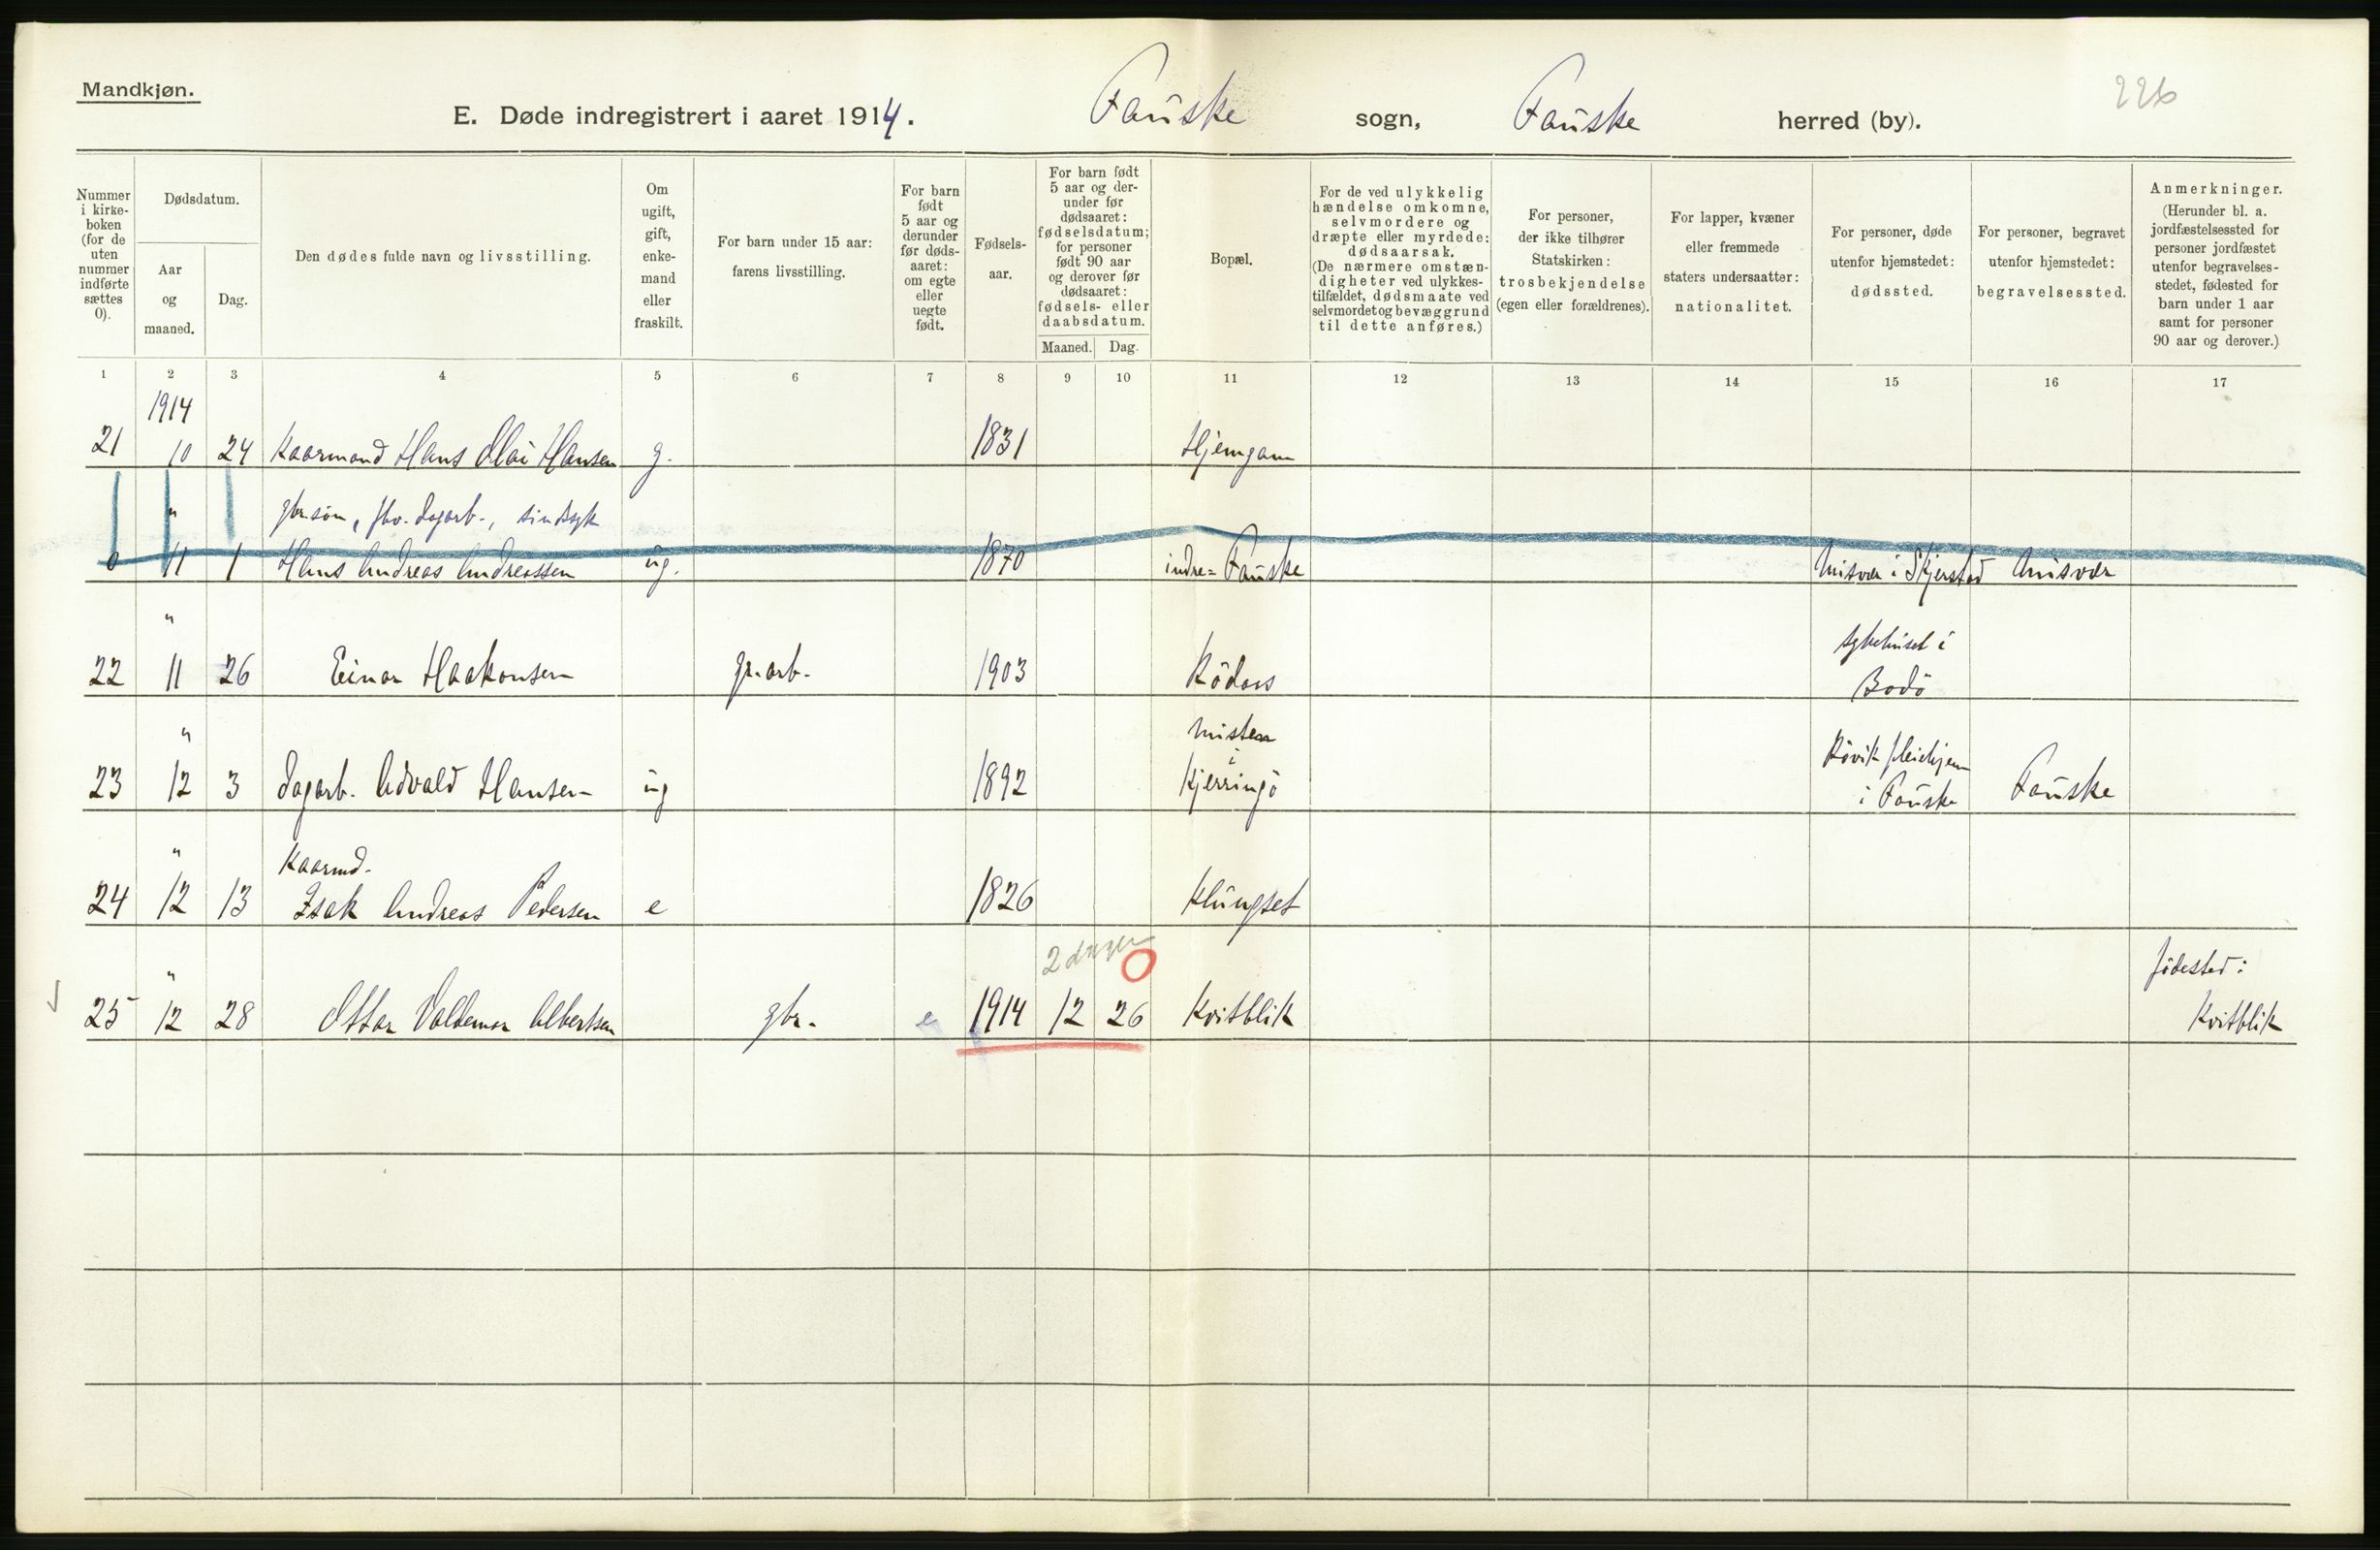 Mandkjøn.
226
E. Døde indregistrert i aaret 1914. Fauske sogn, Fauske herred (by).
Nummer i kirke-boken (for de uten nummer indførte sættes 0).
Dødsdatum.
Aar og maaned.
Dag.
Den dødes fulde navn og livsstilling.
Om ugift, gift, enke-mand eller fraskilt.
For barn under 15 aar: farens livsstilling.
For barn født 5 aar og derunder før døds-aaret: om egte eller uegte født.
Fødsels-aar.
For barn født 5 aar og der-under før dødsaaret: fødselsdatum; for personer født 90 aar og derover før dødsaaret: fødsels- eller daabsdatum.
Maaned. Dag.
Bopæl.
For de ved ulykkelig hændelse omkomne, selvmordere og dræpte eller myrdede: dødsaarsak. (De nærmere omstæn-digheter ved ulykkes-tilfældet, dødsmaate ved selvmordet og bevæggrund til dette anføres.)
For personer, der ikke tilhører Statskirken: trosbekjendelse (egen eller forældrenes).
For lapper, kvæner eller fremmede staters undersaatter: nationalitet.
For personer, døde utenfor hjemstedet: dødssted.
For personer, begravet utenfor hjemstedet: begravelsessted.
Anmerkninger. (Herunder bl. a. jordfæstelsessted for personer jordfæstet utenfor begravelses-stedet, fødested for barn under 1 aar samt for personer 90 aar og derover.)
1 2 3 4 5 6 7 8 9 10 11 12 13 14 15 16 17
1914
21 10 24 Kaarmand Hans Hansen g. 1831 Hjemgam
" gbr.søn, fhv. dagarb., sindsyk
0 11 1 Hans Andreas Andreassen ug. 1870 indre= Fauske Misvær i Skjerstad Misvær
" sykehuset i
22 11 26 Einar Haakonsen gr.arb. 1903 Rödaas Bodö
" Misten Rövik pleiehjem
23 12 3 dagarb. Advald Hansen ug 1892 i Kjerringö i Fauske Fauske
" Kaarmd.
24 12 13 Isak Andreas Pedersen e 1826 Klungset
2 dager 0
" födested:
25 12 28 Ottar Valdemar Albertsen gbr. e 1914 12 26 Kvitblik Kvitblik